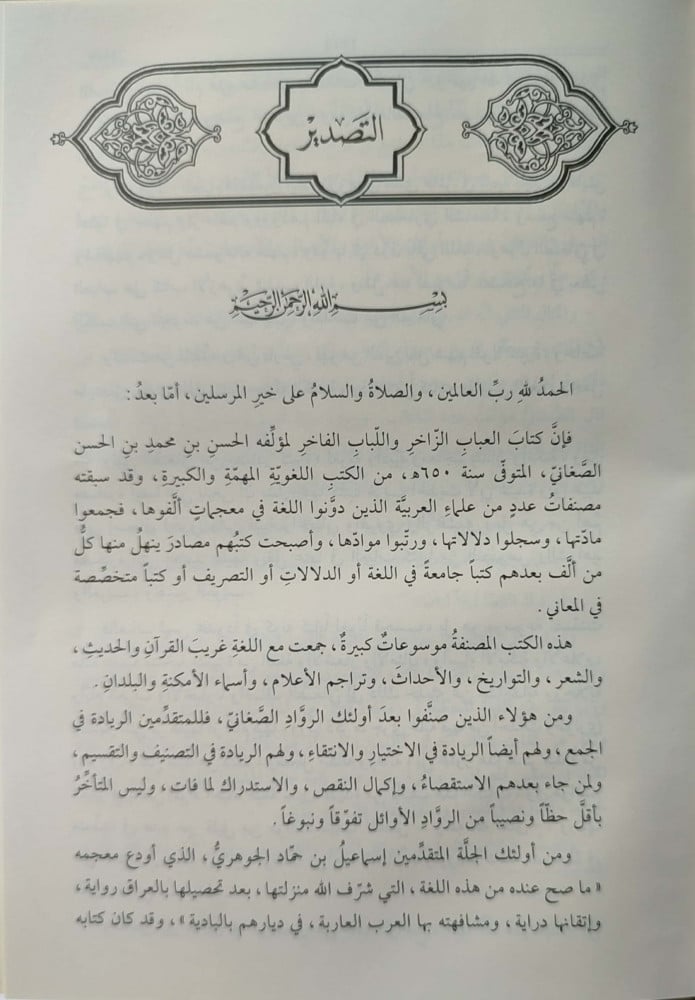 التَّصدير
بِسْمِ اللهِ الرَّحْمَنِ الرَّحِيمِ
الحمدُ للهِ ربِّ العالمين، والصلاةُ والسلامُ على خيرِ المرسلين، أمّا بعدُ:
فإنَّ كتابَ العبابِ الزّاخرِ واللّبابِ الفاخرِ لمؤلِّفه الحسنِ بنِ محمدِ بنِ الحسن
الصَّغانيّ، المتوفّى سنة ٦٥٠هـ، من الكتبِ اللغويّةِ المهمّةِ والكبيرةِ، وقد سبقته
مصنفاتُ عددٍ من علماءِ العربيَّة الذين دوَّنوا اللغة في معجماتٍ ألَّفوها، فجمعوا
مادّتها، وسجلوا دلالاتها، ورتّبوا موادّها، وأصبحت كتبُهم مصادرَ ينهلُ منها كلُّ
من ألَّف بعدهم كتباً جامعةً في اللغة أو الدلالاتِ أو التصريف أو كتباً متخصِّصة
في المعاني.
هذه الكتب المصنفةُ موسوعاتٌ كبيرةٌ، جمعت مع اللغةِ غريبَ القرآنِ والحديثِ،
والشعر، والتواريخ، والأحداثَ، وتراجم الأعلام، وأسماء الأمكنةِ والبلدانِ.
ومن هؤلاء الذين صنَّفوا بعدَ أولئك الروَّادِ الصَّغانيّ، فللمتقدِّمين الريادة في
الجمع، ولهم أيضاً الريادة في الاختيارِ والانتقاءِ، ولهم الريادة في التصنيف والتقسيم،
ولمن جاء بعدهم الاستقصاءُ، وإكمال النقص، والاستدراك لما فات، وليس المتأخِّرُ
بأقلَّ حظّاً ونصيباً من الروَّادِ الأوائل تفوّقاً ونبوغاً.
ومن أولئك الجلَّة المتقدِّمين إسماعيلُ بن حمّاد الجوهريُّ، الذي أودع معجمه
« ما صح عنده من هذه اللغة، التي شرّف الله منزلتها، بعد تحصيلها بالعراق رواية،
وإتقانها دراية، ومشافهته بها العرب العاربة، في ديارهم بالبادية »، وقد كان كتابه